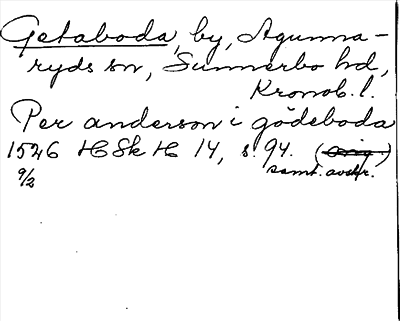 Getaboda, by, Agunna-
ryds sn, Sunnerbo hd,
Kronob. l.
Per anderson i gödeboda
1526 HSkH 14, s. 94. (orig.)
9/2 samt. avskr.